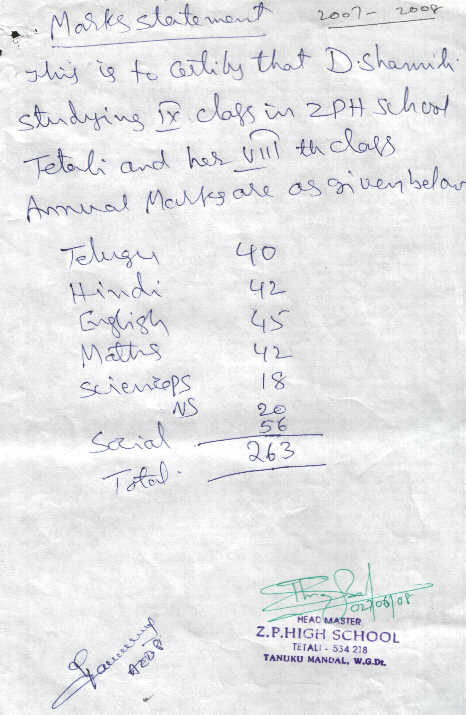 Marks statement 2007-2008
This is to certify that D. Sharmili
studying IX class in ZPH School
Tetali and her VIII th class
Annual Marks are as given below
Telugu 40
Hindi 42
English 45
Maths 42
Science PS 18
NS 20
Social 56
Total. 263
02/08/08
HEAD MASTER
Z.P.HIGH SCHOOL
TETALI - 534 218
TANUKU MANDAL, W.G.Dt.